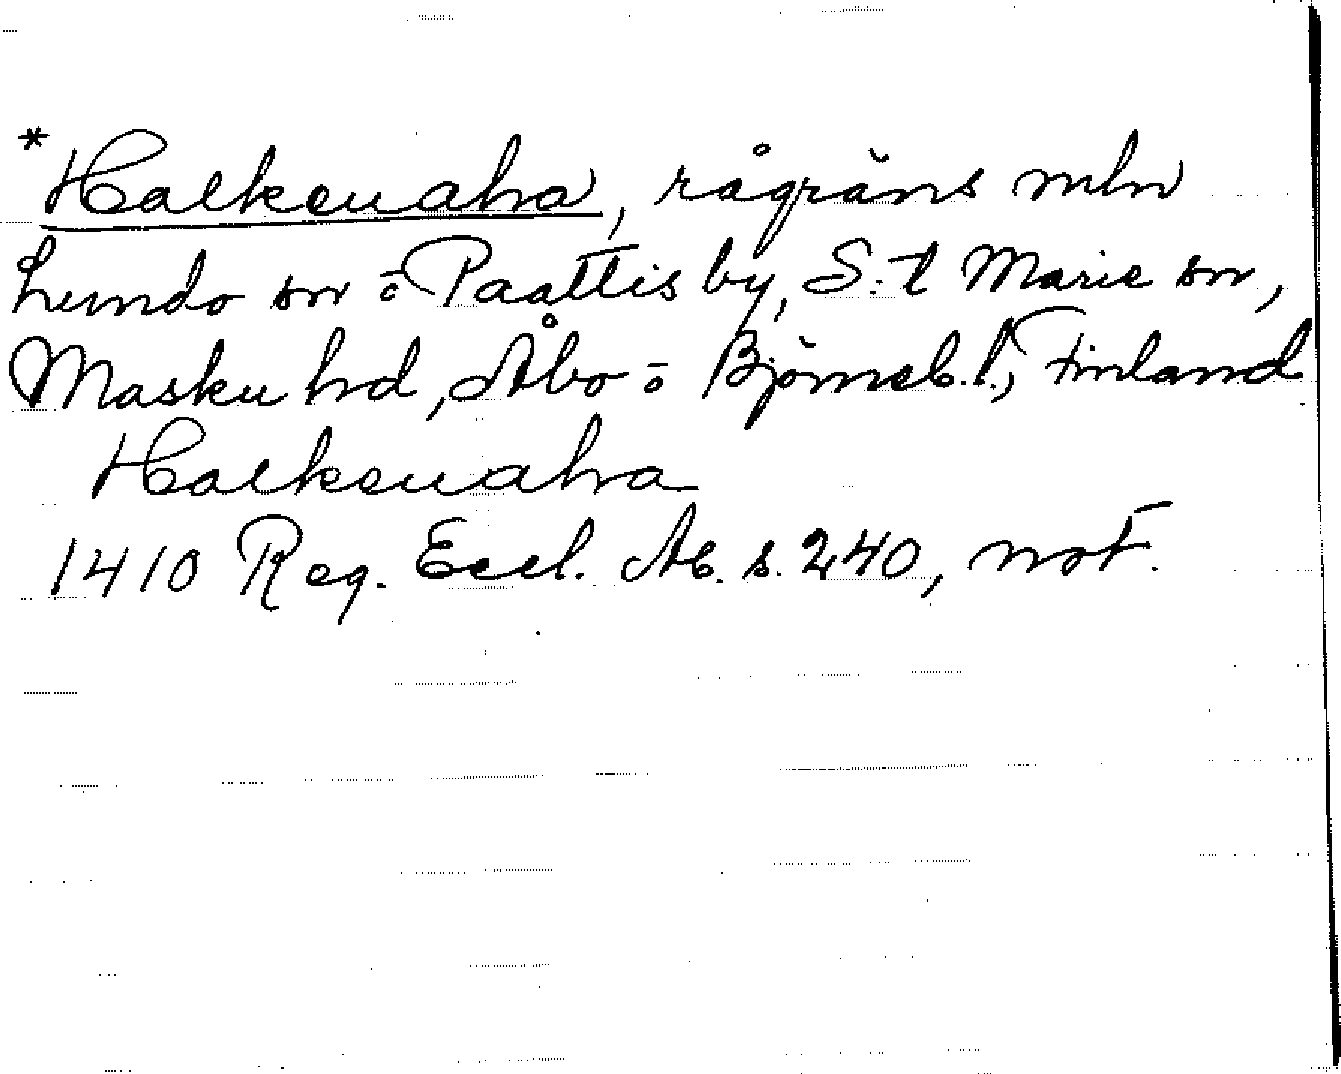 *Halkenaha, rågräns mln
Lundo sn o Paattis by, S:t Marie sn,
Masku hd, Åbo o Björneb. l., Finland
Halkenaha
1410 Reg. Eccl. Ab. s. 240, not.